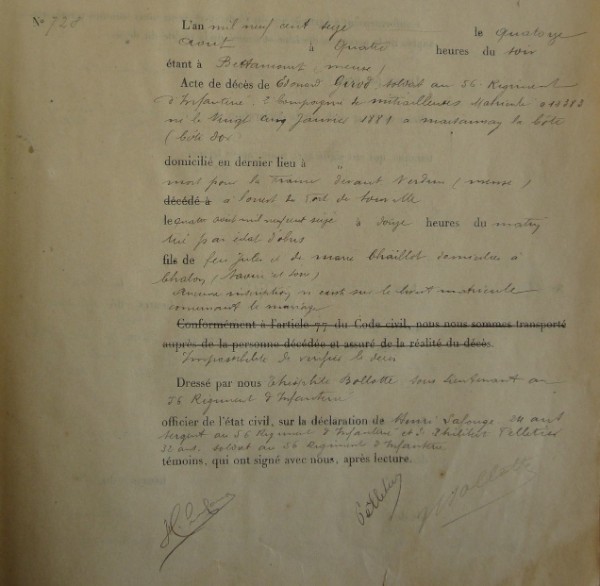 N° 728
L'an mil neuf cent seize le quatorze
Aout à quatre heures du soir
étant à (meuse)
Acte de décès de Edouard Girod soldat au 56 Regiment
d'Infanterie, 2 Compagnie de mitrailleuses Matricule
né le Vingt cinq Janvier 1881 a marsannay la côte
(côte d'or)
domicilié en dernier lieu à
mort pour la France devant Verdun (meuse)
décédé à a l'ouest du Fort de
le quatre aout mil neuf cent seize à heures du matin
tué par éclat d'obus
fils de feu Jules et de marie Chaillot domiciliés à
(Saone et Loire)
Aucune inscription n'existe sur le livret matricule
concernant le mariage
Conformément à l'article 77 du Code civil, nous nous sommes transporté
auprès de la personne décédée et assuré de la réalité du décès.
Impossibilité de verifier le deces
Dressé par nous Théophile Bollotte sous lieutenant au
56 Regiment d'Infanterie
officier de l'état civil, sur la déclaration de Henri 24 ans
sergent au 56 Regiment d'Infanterie et Philibert Pelletier
32 ans, soldat au 56 Regiment d'Infanterie
témoins, qui ont signé avec nous, après lecture.
Pelletier Bollotte